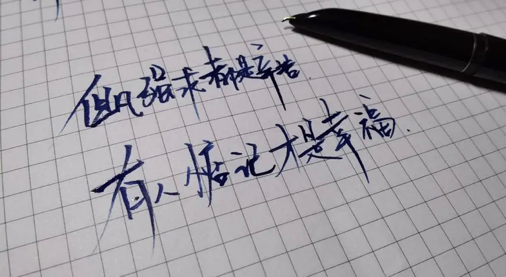 但凡强求都是辛苦
有人惦记才是幸福.